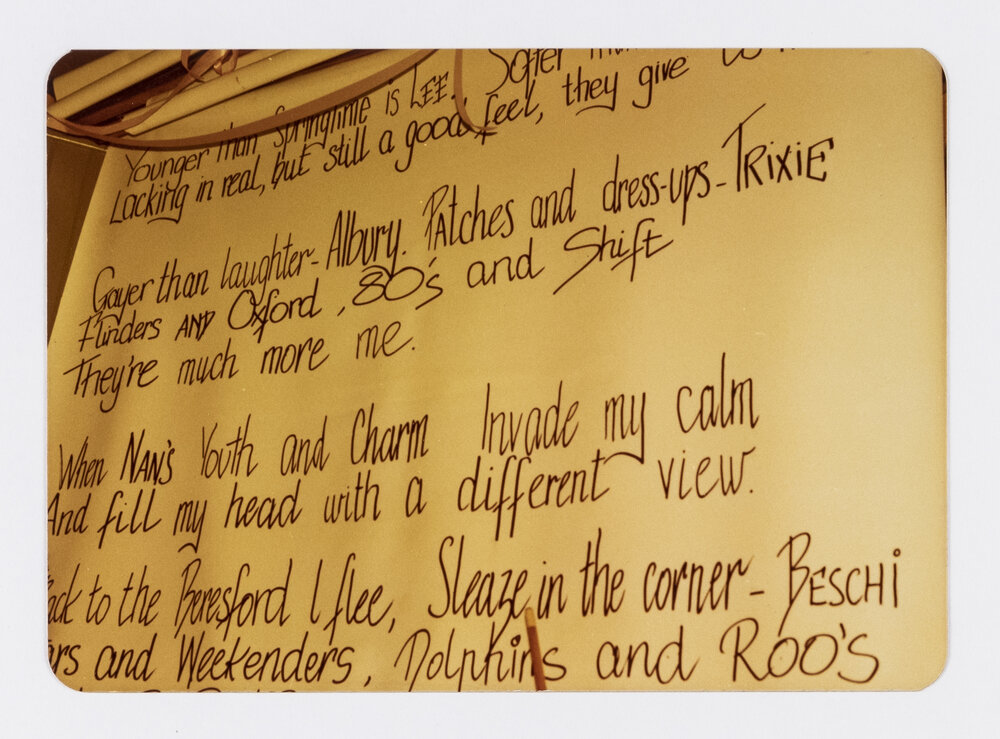 Younger than Springtime is LEE. Softer
Lacking in real, but still a good feel, they give
Gayer than laughter - Albury. Patches and dress-ups - TRIXIE
Flinders AND Oxford, 80's and Shift
They're much more me.
When NAN'S Youth and Charm Invade my calm
And fill my head with a different view.
to the Beresford I flee, Sleaze in the corner - BESCHI
and Weekenders, Dolphins and ROO'S